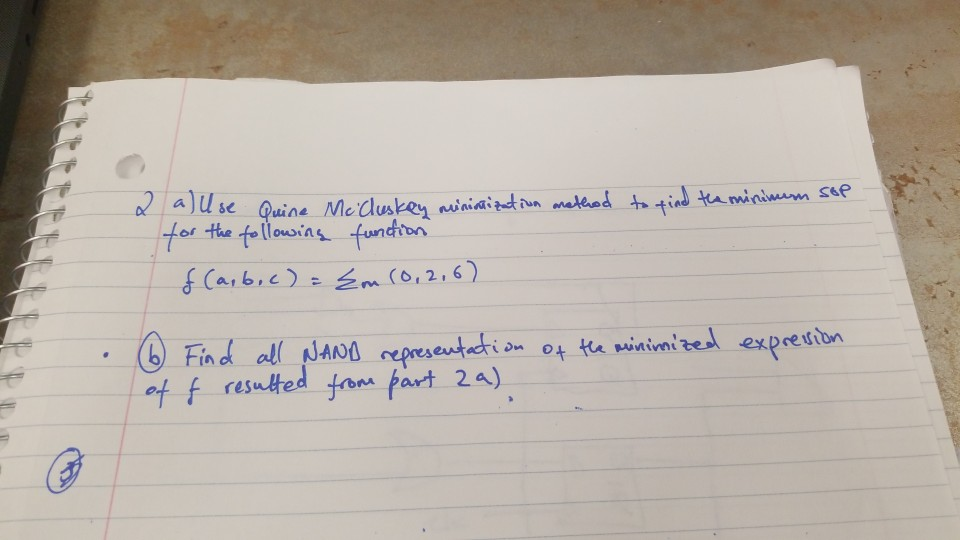 2 a) Use Quine McCluskey minimization method to find the minimum SOP
for the following function
f (a,b,c) = Σm (0,2,6)
(b) Find all NAND representation of the minimized expression
of f resulted from part 2a)